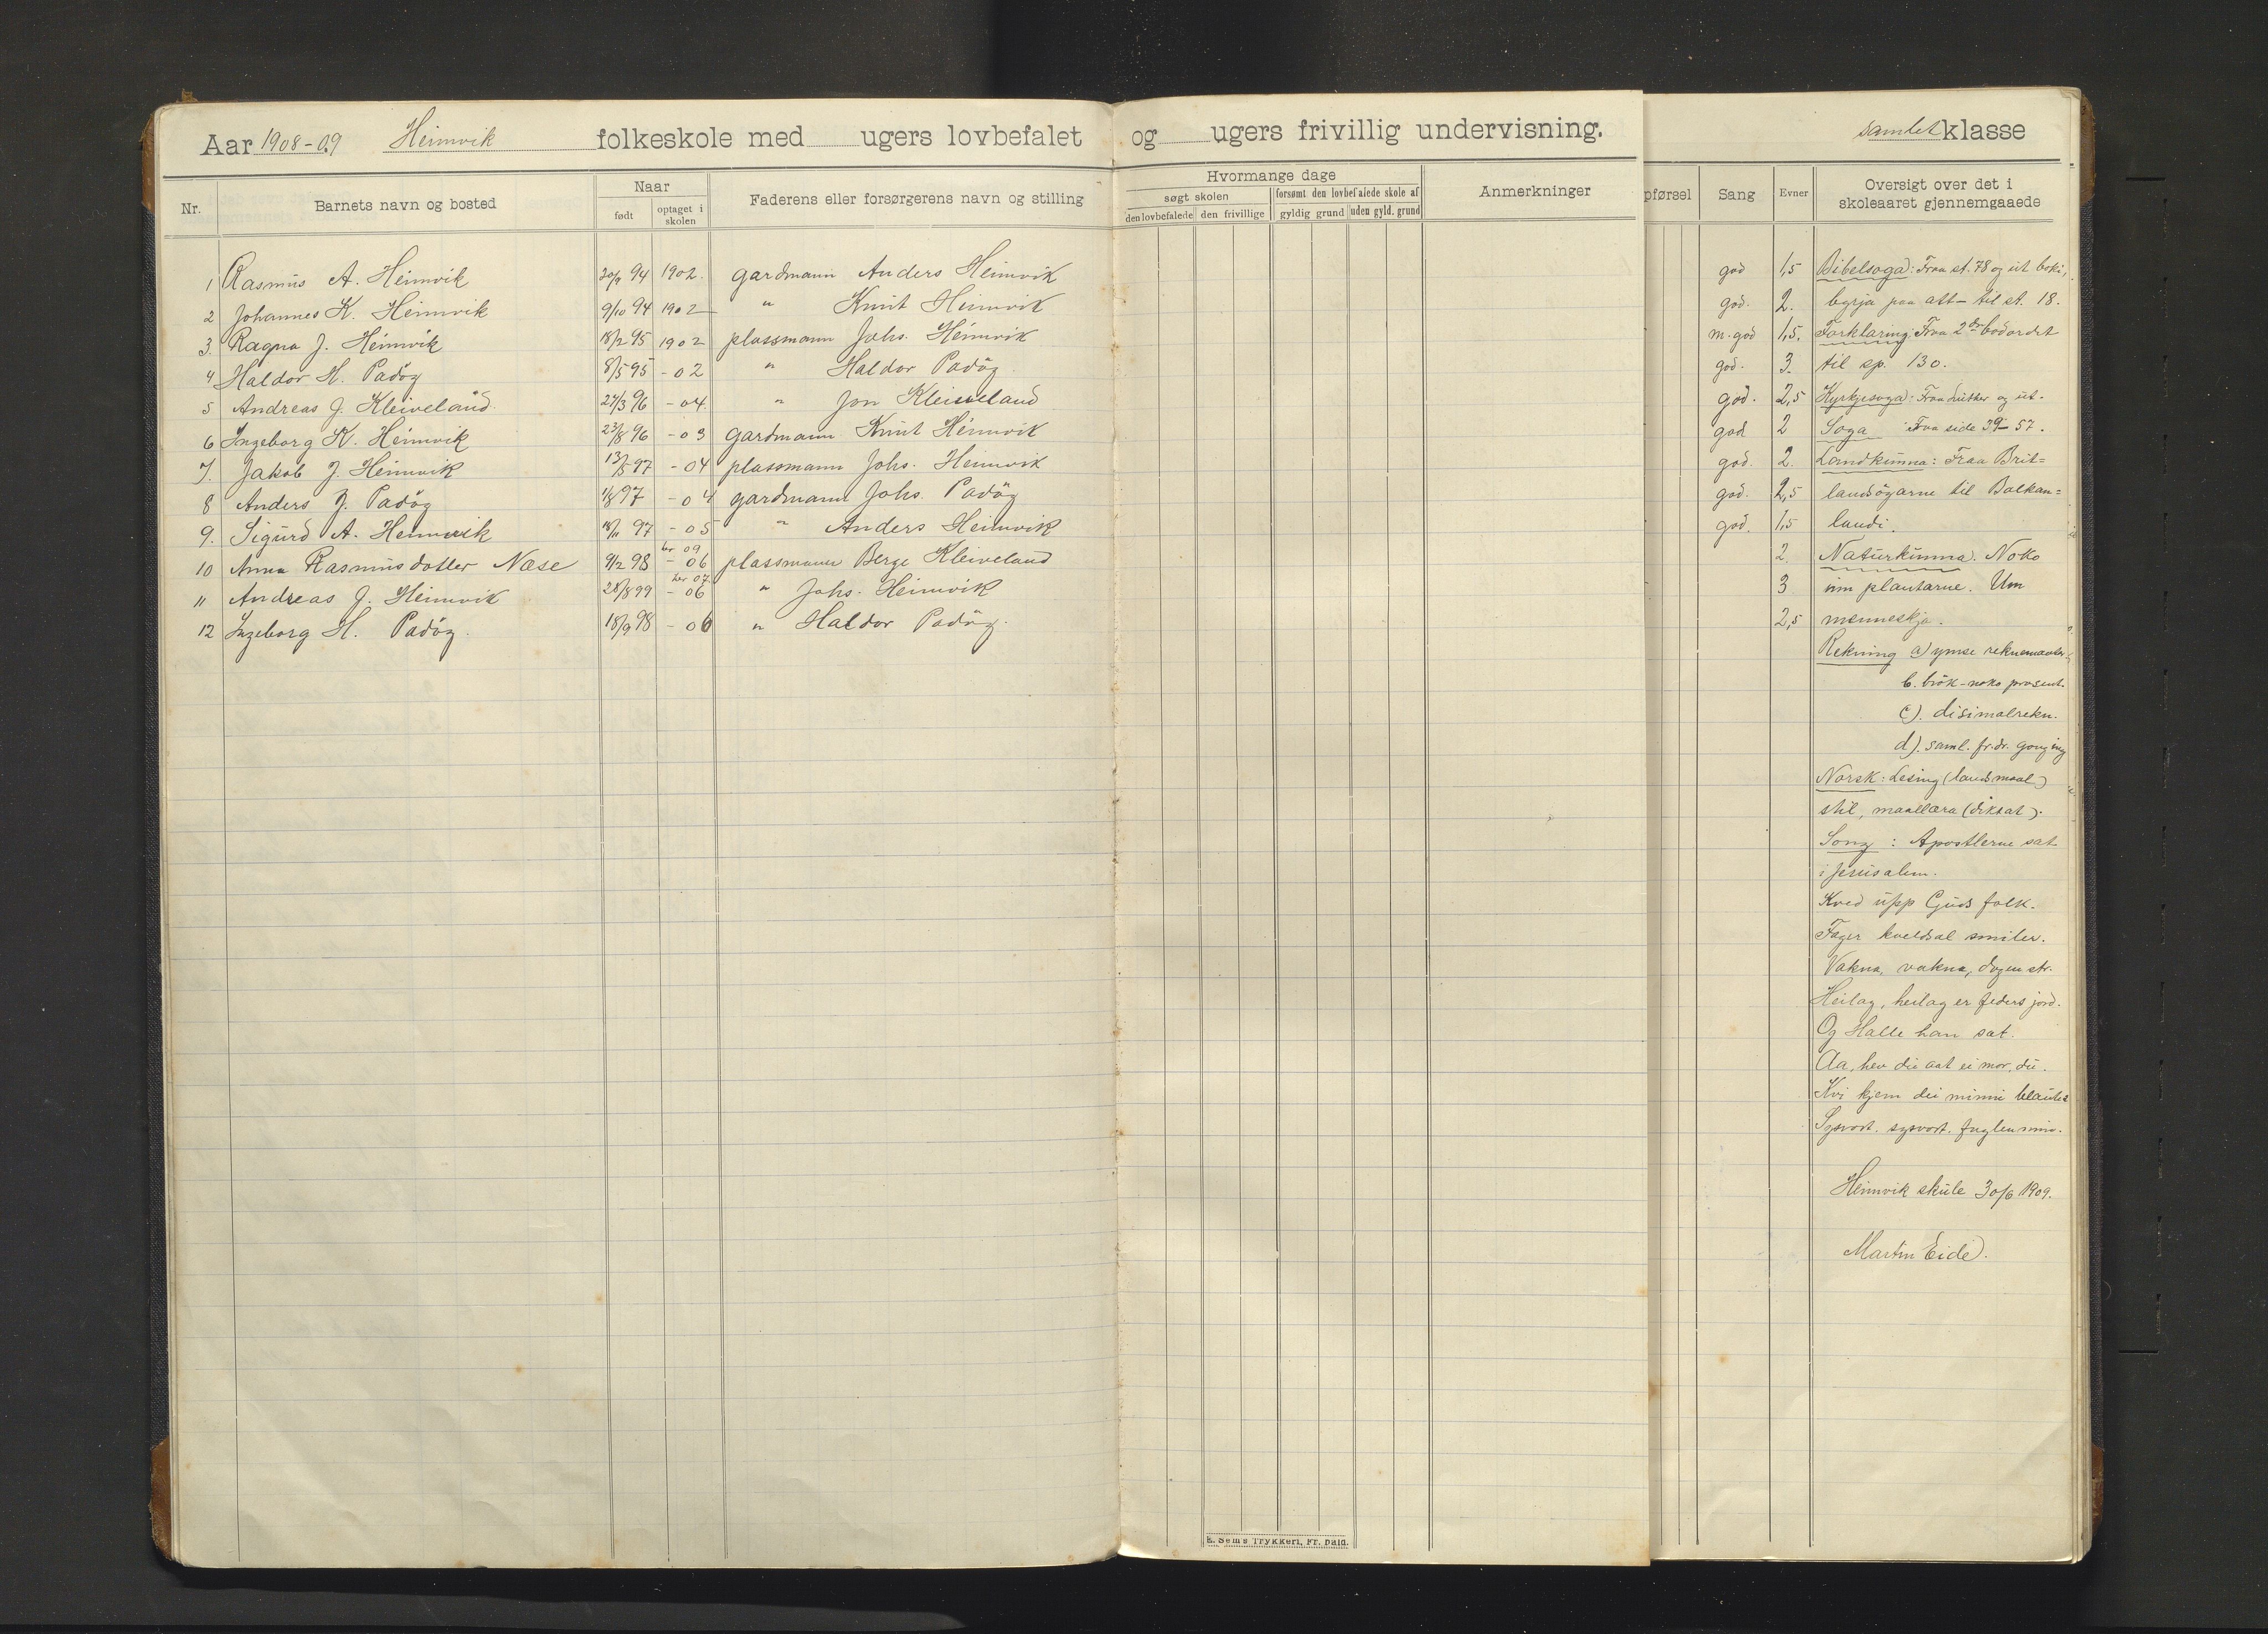 Aar 1908-09 Heimvik folkeskole med ugers lovbefalet og ugers frivillig undervisning. samlet klasse
Nr. Barnets navn og bosted Naar født optaget i skolen Faderens eller forsørgerens navn og stilling
Hvormange dage
søgt skolen forsømt den lovbefalede skole af
den lovbefalede den frivillige gyldig grund uden gyld. grund
Anmerkninger
pførsel Sang Evner Oversigt over det i
skoleaaret gjennemgaaede
1 Rasmus A. Heimvik 20/9 94 1902. gardmann Anders Heimvik
2 Johannes K. Heimvik 9/10 94 1902 " Knut Heimvik
3. Ragna J. Heimvik 18/2 95 1902 plassmann Johs. Heimvik
4 Haldor H. Padøy 8/5 95 -02 " Haldor Padøy
5 Andreas J. Kleiveland 27/3 96 -04. " Jon Kleiveland
6 Ingeborg K. Heimvik 23/8 96 -03 gardmann Knut Heimvik
7. Jakob J. Heimvik 13/5 97 -04 plassmann Johs. Heimvik
8 Anders J. Padøy 1/8 97 -04 gardmann Johs. Padøy
9. Sigurd A. Heimvik 18/11 97 -05 " Anders Heimvik
10 Anna Rasmusdotter Næse 9/12 98 -06 plassmann Berge Kleiveland
11 Andreas J. Heimvik 28/8 99 -06 " Johs. Heimvik
12 Ingeborg H. Padøy. 18/9 98 -06 " Haldor Padøy.
god 1,5 Bibelsoga: Fraa st. 78 og ut boki,
god. 2. byrja paa att- til st. 18.
m. god 1,5. Forklaring. Fraa 2det bodordet
god. 3. til sp. 130.
god. 2,5 Kyrkjesoga: Fraa Luther og ut.
god 2 Soga Fraa side 39-57.
god. 2. Landkunna: Fraa Brit=
god. 2,5 landsøyarne til Balkan=
god. 1,5 landi.
2 Naturkunna. Noko
3 um plantarne. Um
2,5 menneskja.
Rekning a) ymse reknemaatar
b. brøk - noko prosent.
c). disimalrekn.
d). saml. fr. dr. gonging
Norsk: Lesing (landsmaal)
stil, maallæra (diktat).
Song: Apostlerne sat
i Jerusalem.
Kved upp Guds folk.
Fager kveldsol smiler.
Vakna, vakna,
Heilag, heilag er feders jord.
Og Halle han sat.
Aa, hev du aat ei mor, du.
Kvi kjem dei minni
Heimvik skule 30/6 1909.
Martin Eide.
E. Sems Trykkeri, Fr. hald.